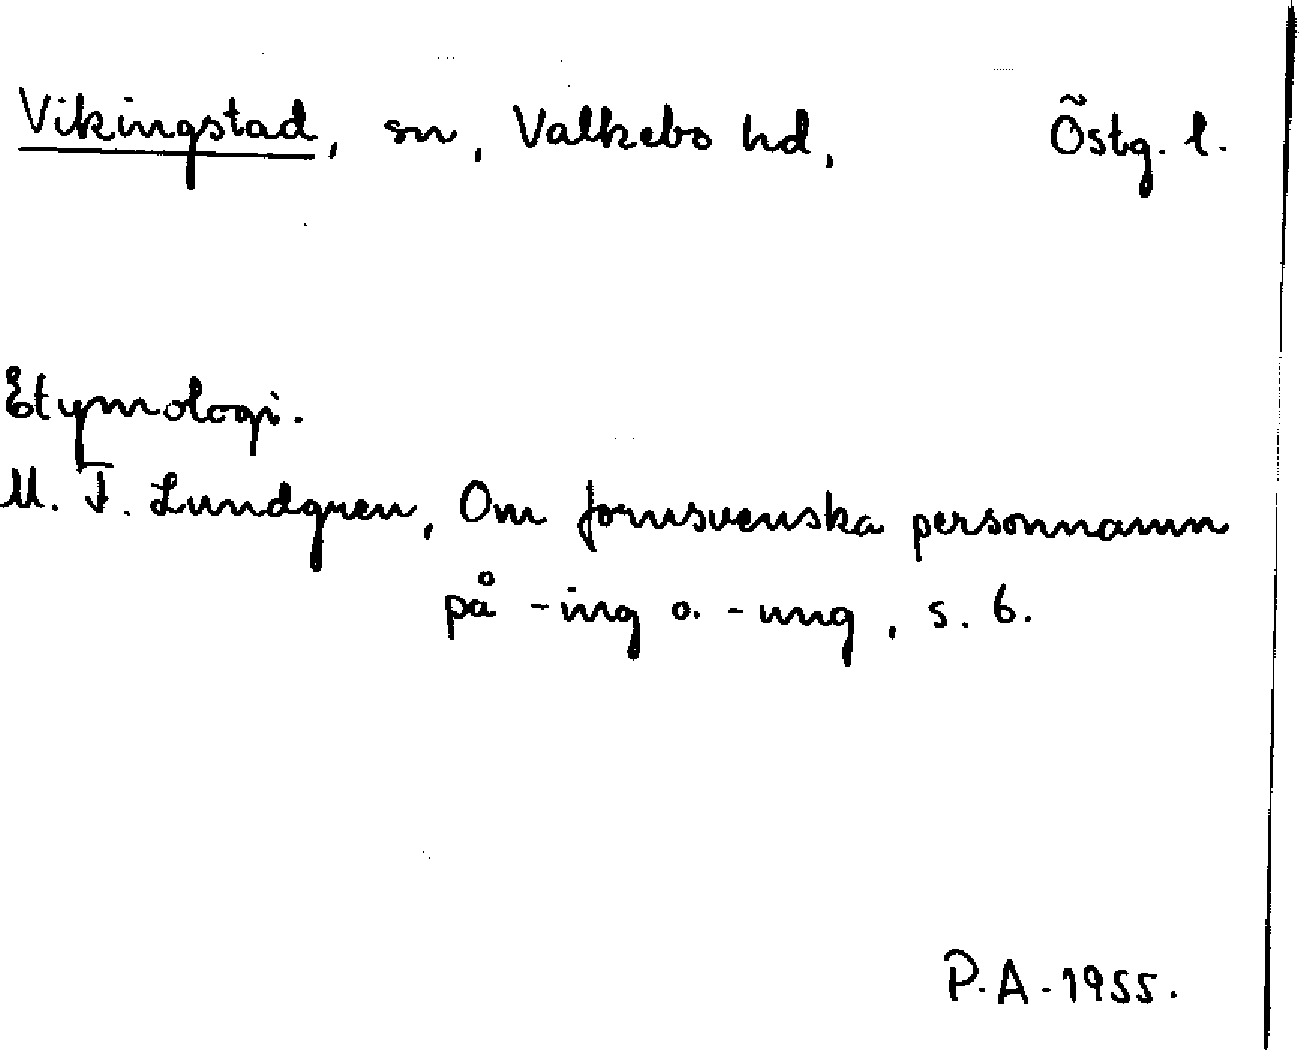 Vikingstad, sn, Valkebo hd, Östg. l.
Etymologi.
M. F. Lundgren, Om fornsvenska personnamn
på -ing o. -ung, s. 6.
P. A. 1955.